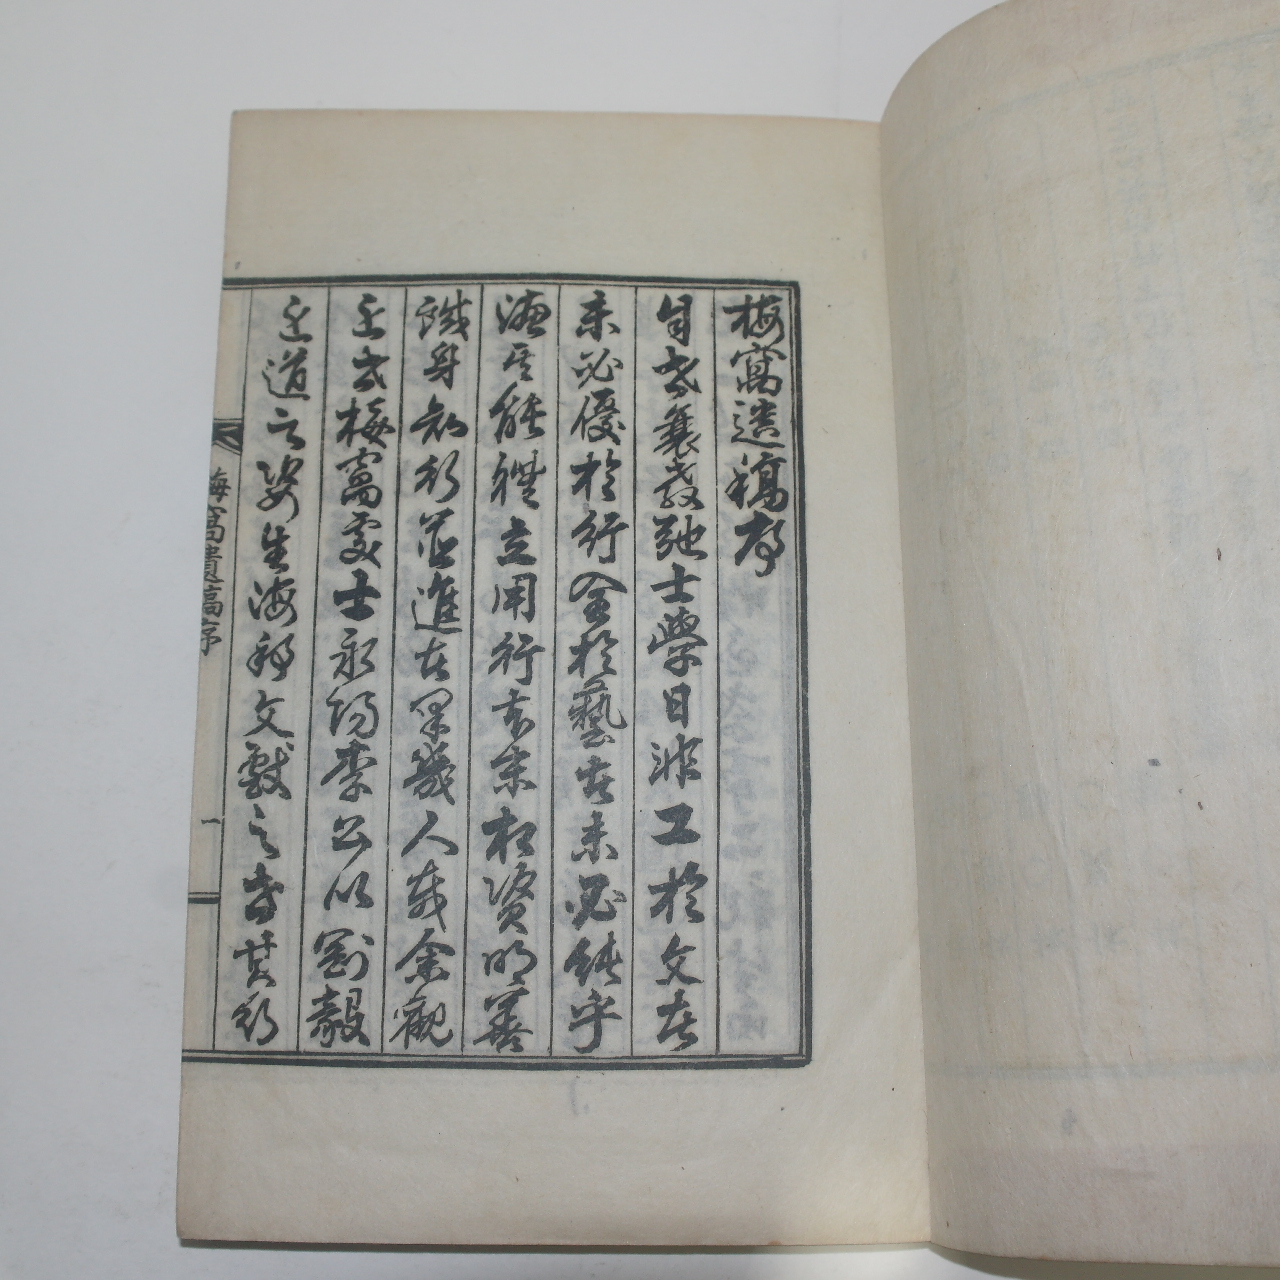 梅窩遺稿序
自世衰敎弛士學日漓工於文者
未必優於行全於藝者未必純乎
德其能體立用行本末相資明善
誠身知行並進者果幾人哉余觀
近世梅窩處士永陽李公以剛毅
近道之姿生海東文獻之世其行
梅窩遺稿序
一